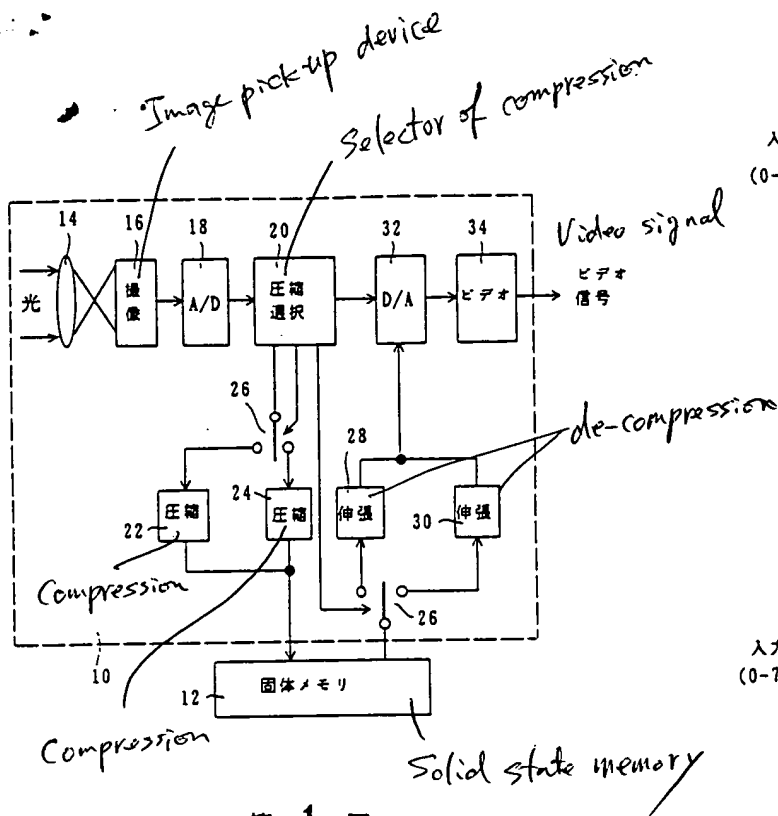 Image pick-up device
Selector of compression
Video signal
14
16
18
20
32
34
光
撮像
A/D
圧縮
選択
D/A
ビデオ
ビデオ
信号
26
de-compression
22
圧縮
24
圧縮
28
伸張
30
伸張
Compression
26
10
12
固体メモリ
Compression
Solid state memory
入
(0-
入力
(0-
1